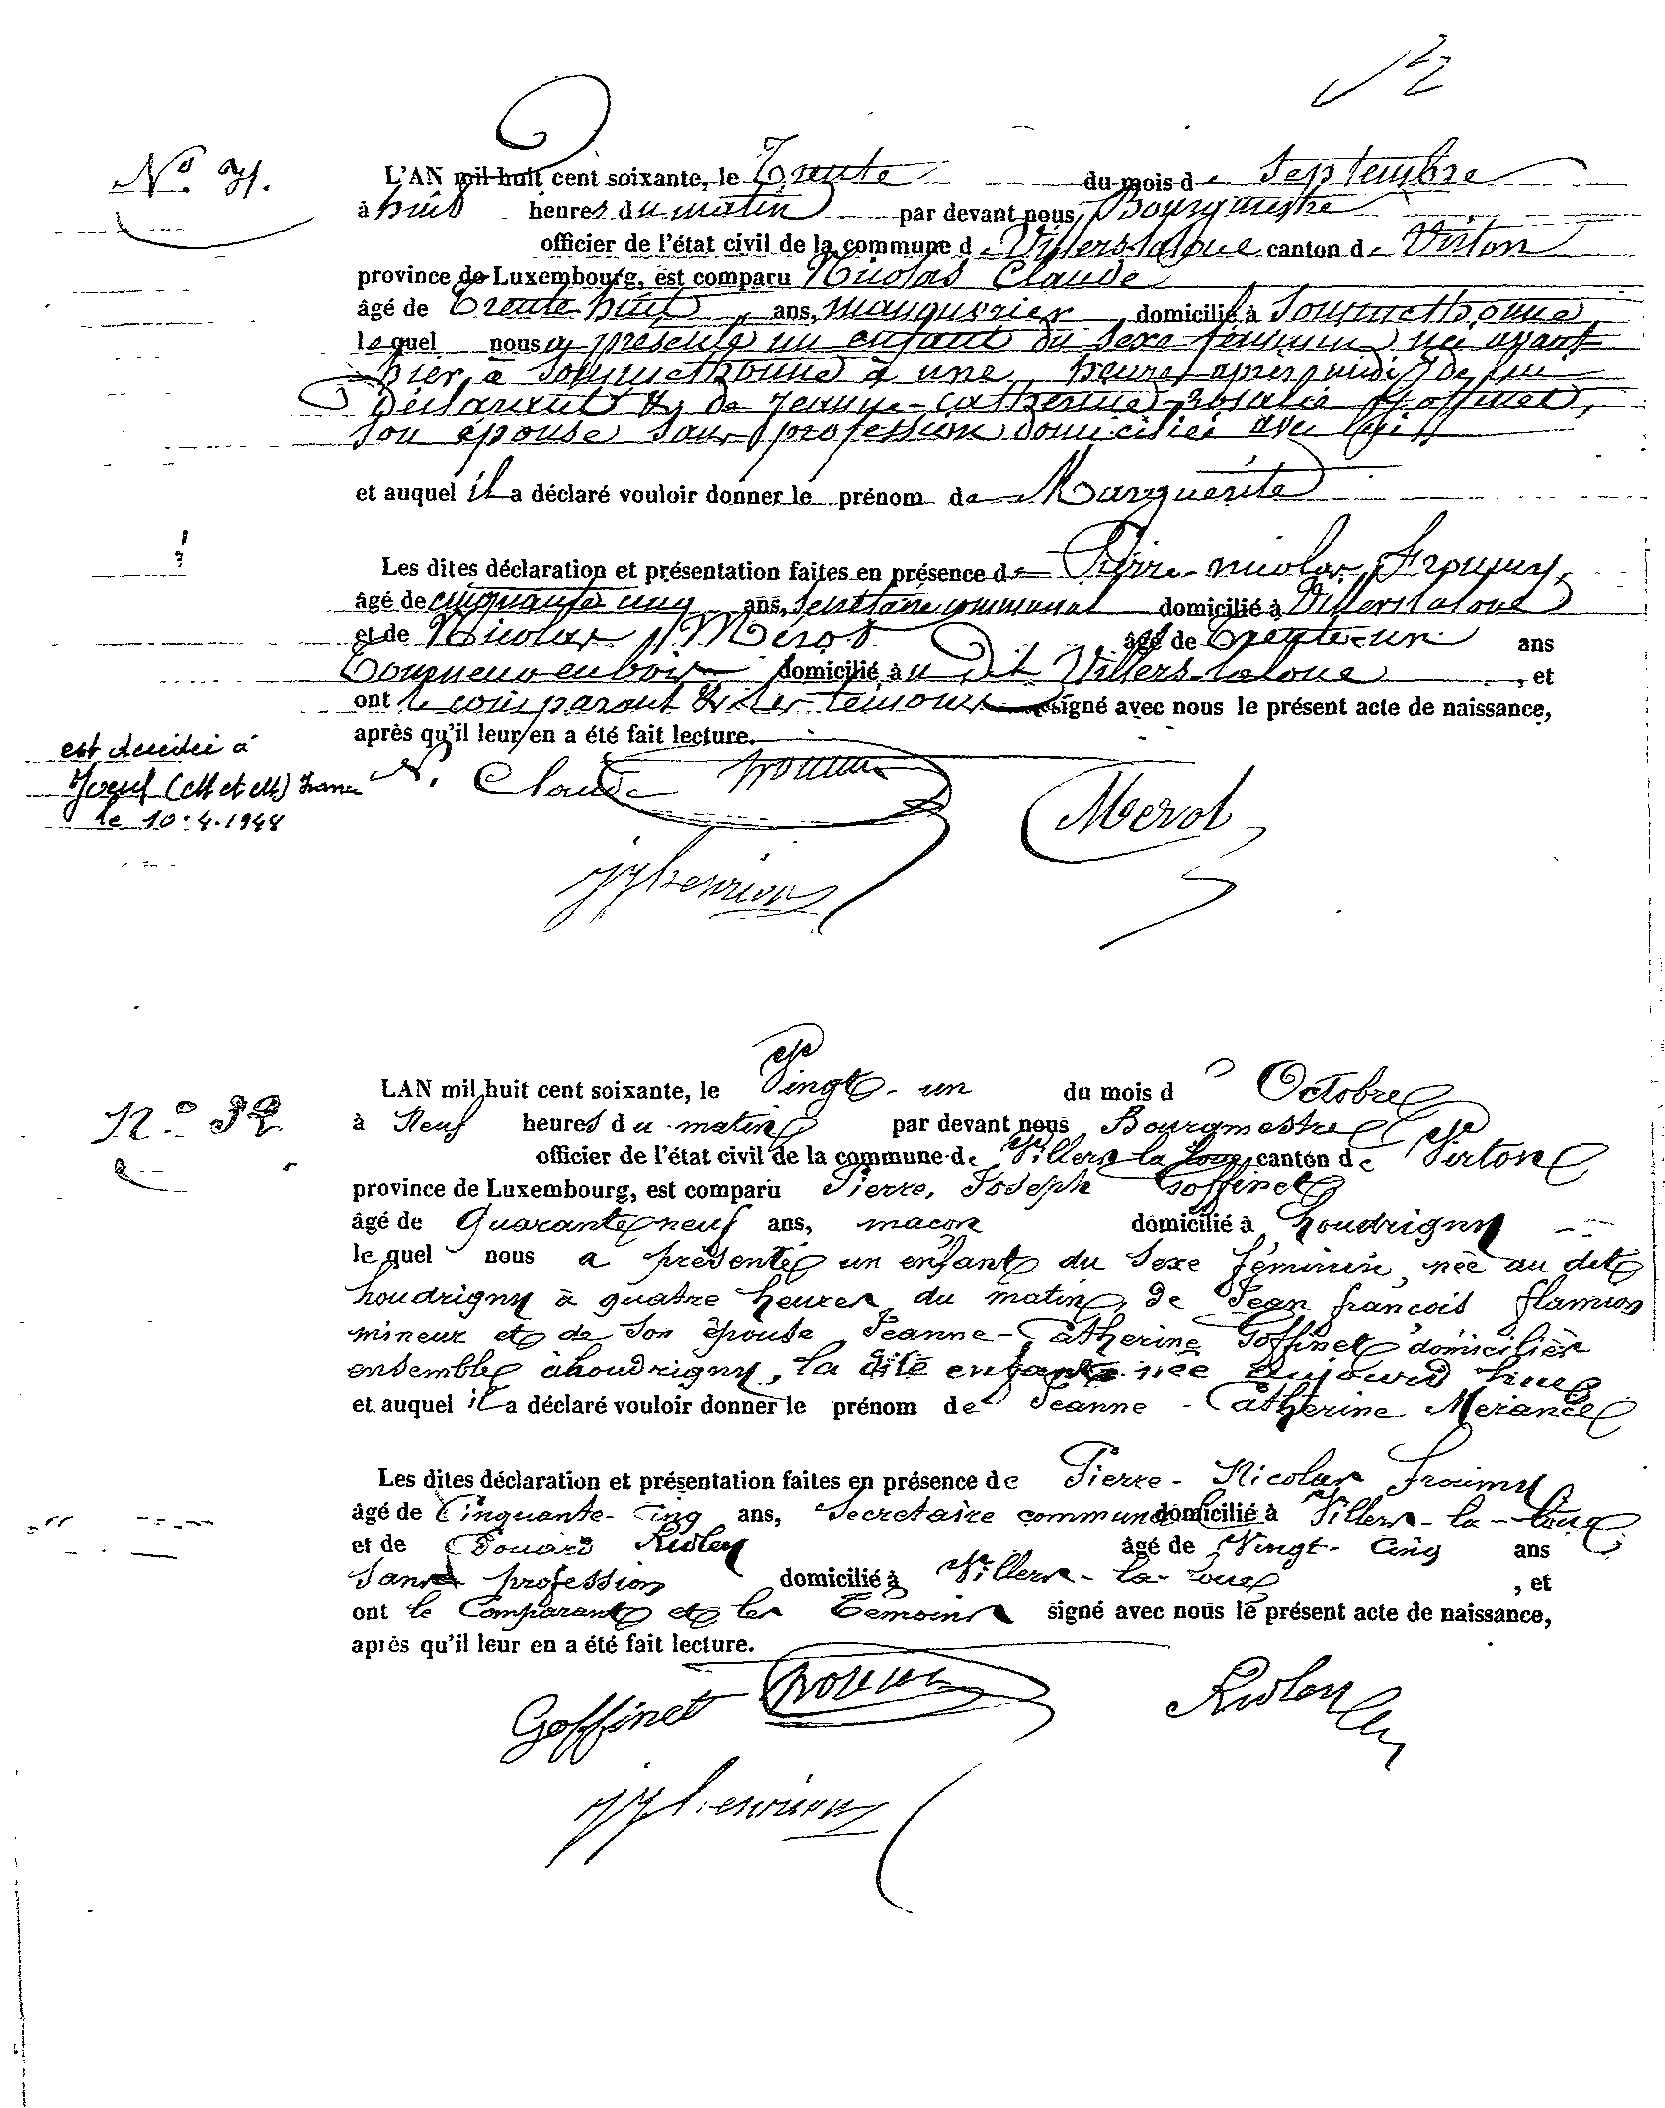 12
N.° 31.
L'AN mil huit cent soixante, le Trente du mois de Septembre
à huit heures du matin par devant nous, Bourgmestre
officier de l'état civil de la commune de Villerslaloue canton de Virton
province de Luxembourg, est comparu Nicolas Claude
âgé de Trente huit ans, manouvrier domicilié à Sommethonne
lequel nous a présenté un enfant du sexe féminin, née avant
hier, à Sommethonne à une heure après midi, de lui
déclarant & de Jeanne-Catherine Rosalie Goffinet,
son épouse sans profession domiciliée avec lui
et auquel il a déclaré vouloir donner le prénom de Marguerite
Les dites déclaration et présentation faites en présence de Pierre-Nicolas
âgé de cinquante cinq ans, secrétaire communal domicilié à Villerslaloue
et de Nicolas Merot âgé de Trente-un ans
Tourneur en bois domicilié à u dit Villers-laloue, et
ont le comparant & les temoins signé avec nous le présent acte de naissance,
après qu'il leur en a été fait lecture.
est décédée à
Joeuf (M et M) France
le 10.4.1948
N. Claude
Merot
jjhenrion
N.° 32
LAN mil huit cent soixante, le Vingt-un du mois d' Octobre
à Neuf heures du matin par devant nous Bourgmestre
officier de l'état civil de la commune de Villers la loue, canton de Virton
province de Luxembourg, est comparu Pierre, Joseph Goffinet
âgé de Quarante neuf ans, maçon domicilié à houdrigny
lequel nous a présenté un enfant du sexe féminin, née au dit
houdrigny à quatre heures du matin, de Jean françois flamion
mineur et de son épouse Jeanne-Catherine Goffinet domiciliés
ensemble à houdrigny, la dite enfant née aujourd'hui
et auquel il a déclaré vouloir donner le prénom de Jeanne-Catherine
Les dites déclaration et présentation faites en présence de Pierre-Nicolas
âgé de Cinquante-Cinq ans, Secretaire communal domicilié à Villers-la-loue
et de Edouard âgé de Vingt-Cinq ans
Sans profession domicilié à Villers-la-loue, et
ont le Comparant et les Temoins signé avec nous le présent acte de naissance,
après qu'il leur en a été fait lecture.
Goffinet
jjhenrion